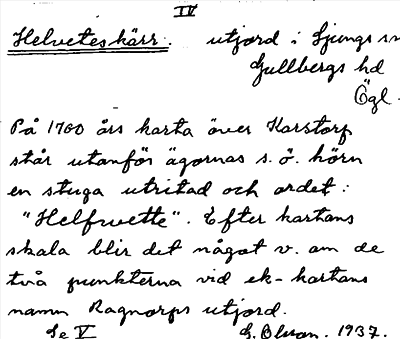 IV
Helveteskärr. utjord i Ljungs sn
Gullbergs hd
Ögl.
På 1700 års karta över Karstorp
står utanför ägornas s. ö. hörn
en stuga utritad och ordet:
"Helfwette". Efter kartans
skala blir det något v. om de
två punkterna vid ek-kartans
namn Ragnorps utjord.
Se V G. Olson. 1937.